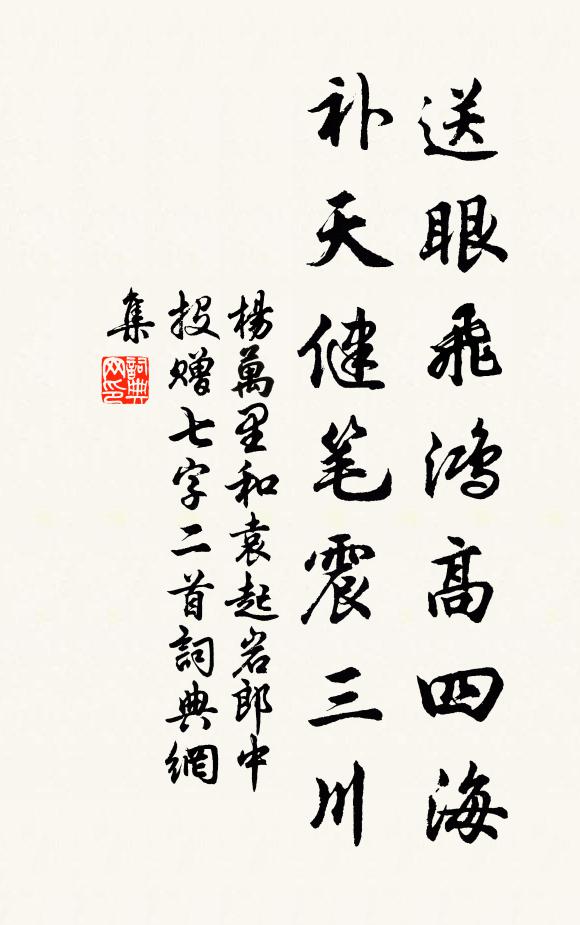 送眼飛鸿高四海
补天健笔震三川
楊萬里和袁起岩郎中
投赠七字二首詞典網
集
詞典
网印